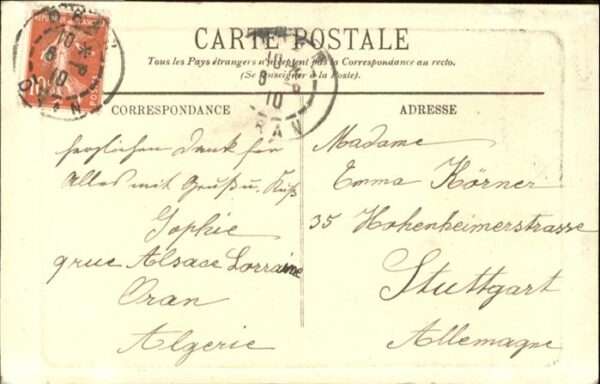 CARTE POSTALE
Tous les Pays étrangers n'acceptent pas la Correspondance au recto.
(Se renseigner à la Poste).
CORRESPONDANCE
herzlichen Dank für
Alles mit Gruß u. Kuß
Sophie
9 rue Alsace Lorraine
Oran
Algerie
ADRESSE
Madame
Emma Körner
35 Hohenheimerstrasse
Stuttgart
Allemagne
10
ORAN